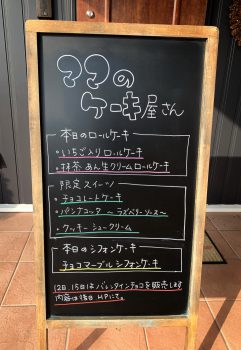 ママの
ケーキ屋さん
本日のロールケーキ
・いちご入りロールケーキ
・抹茶あん生クリームロールケーキ
限定スイーツ
・チョコレートケーキ
・パンナコッタ 〜ラズベリーソース〜
・クッキーシュークリーム
本日のシフォンケーキ
チョコマーブルシフォンケーキ
12日、15日はバレンタインチョコを販売します
内容は後日HPにて。